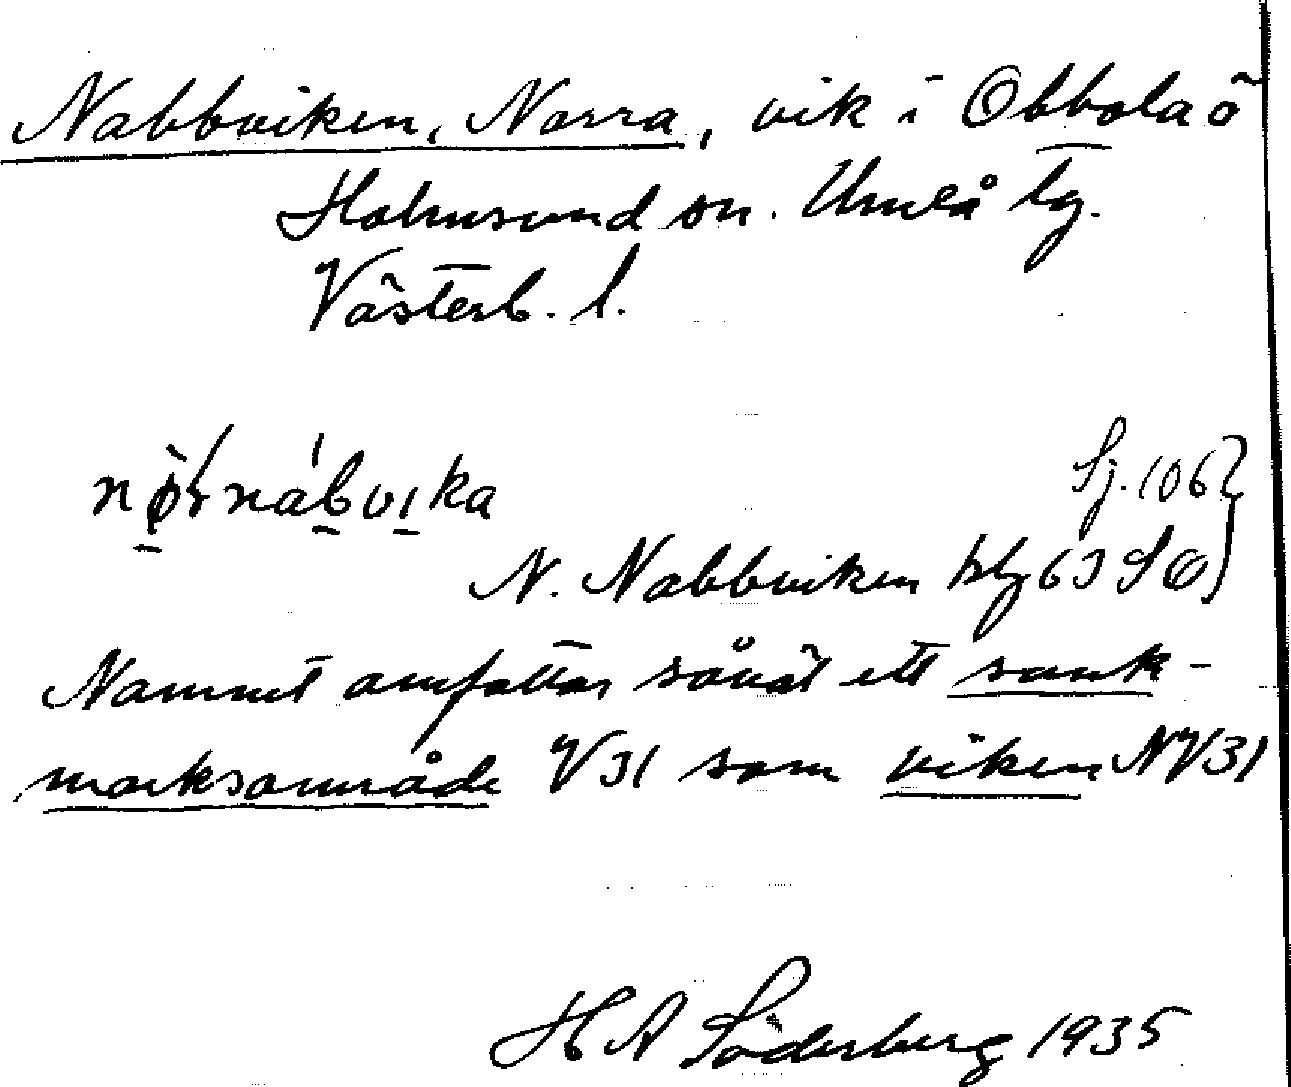 Nabbviken, Norra, vik i Obbola ö
Holmsund sn. Umeå tg.
Västerb. l.
Sj. 106
N. Nabbviken blz 63 SO
Namnet omfattar såväl ett sank-
marksområde V 31 som viken NV 31
H A Söderberg 1935